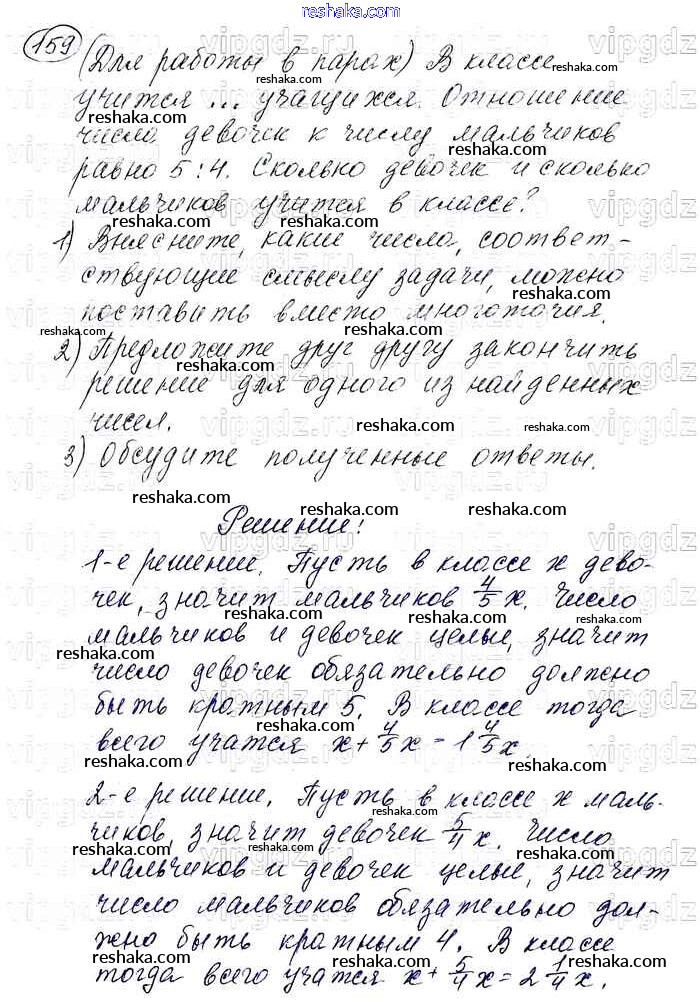 reshaka.com
159
(Для работы в парах) В классе
учится ... учащихся. Отношение
числа девочек к числу мальчиков
равно 5:4. Сколько девочек и сколько
мальчиков учится в классе?
1) Выясните, какие числа, соответ-
ствующие смыслу задачи, можно
поставить вместо многоточия.
2) Предложите друг другу закончить
решение для одного из найденных
чисел.
3) Обсудите полученные ответы.
Решение:
1-е решение. Пусть в классе x дево-
чек, значит мальчиков 4/5 x. Число
мальчиков и девочек целые, значит
число девочек обязательно должно
быть кратным 5. В классе тогда
всего учатся x + 4/5 x = 1 4/5 x.
2-е решение. Пусть в классе x маль-
чиков, значит девочек 5/4 x. Число
мальчиков и девочек целые, значит
число мальчиков обязательно дол-
жно быть кратным 4. В классе
тогда всего учатся x + 5/4 x = 2 1/4 x.